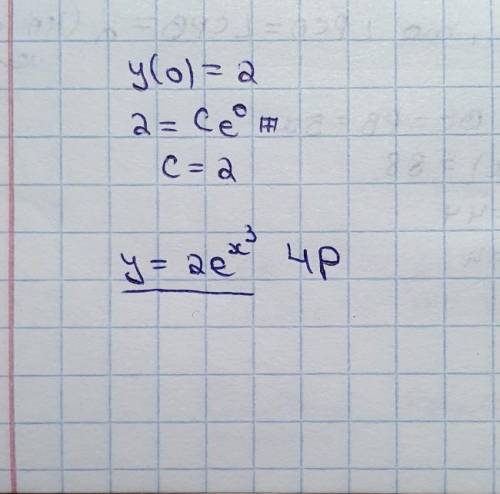 y(0) = 2
2 = Ce⁰
C = 2
y = 2e^{x³} ЧР